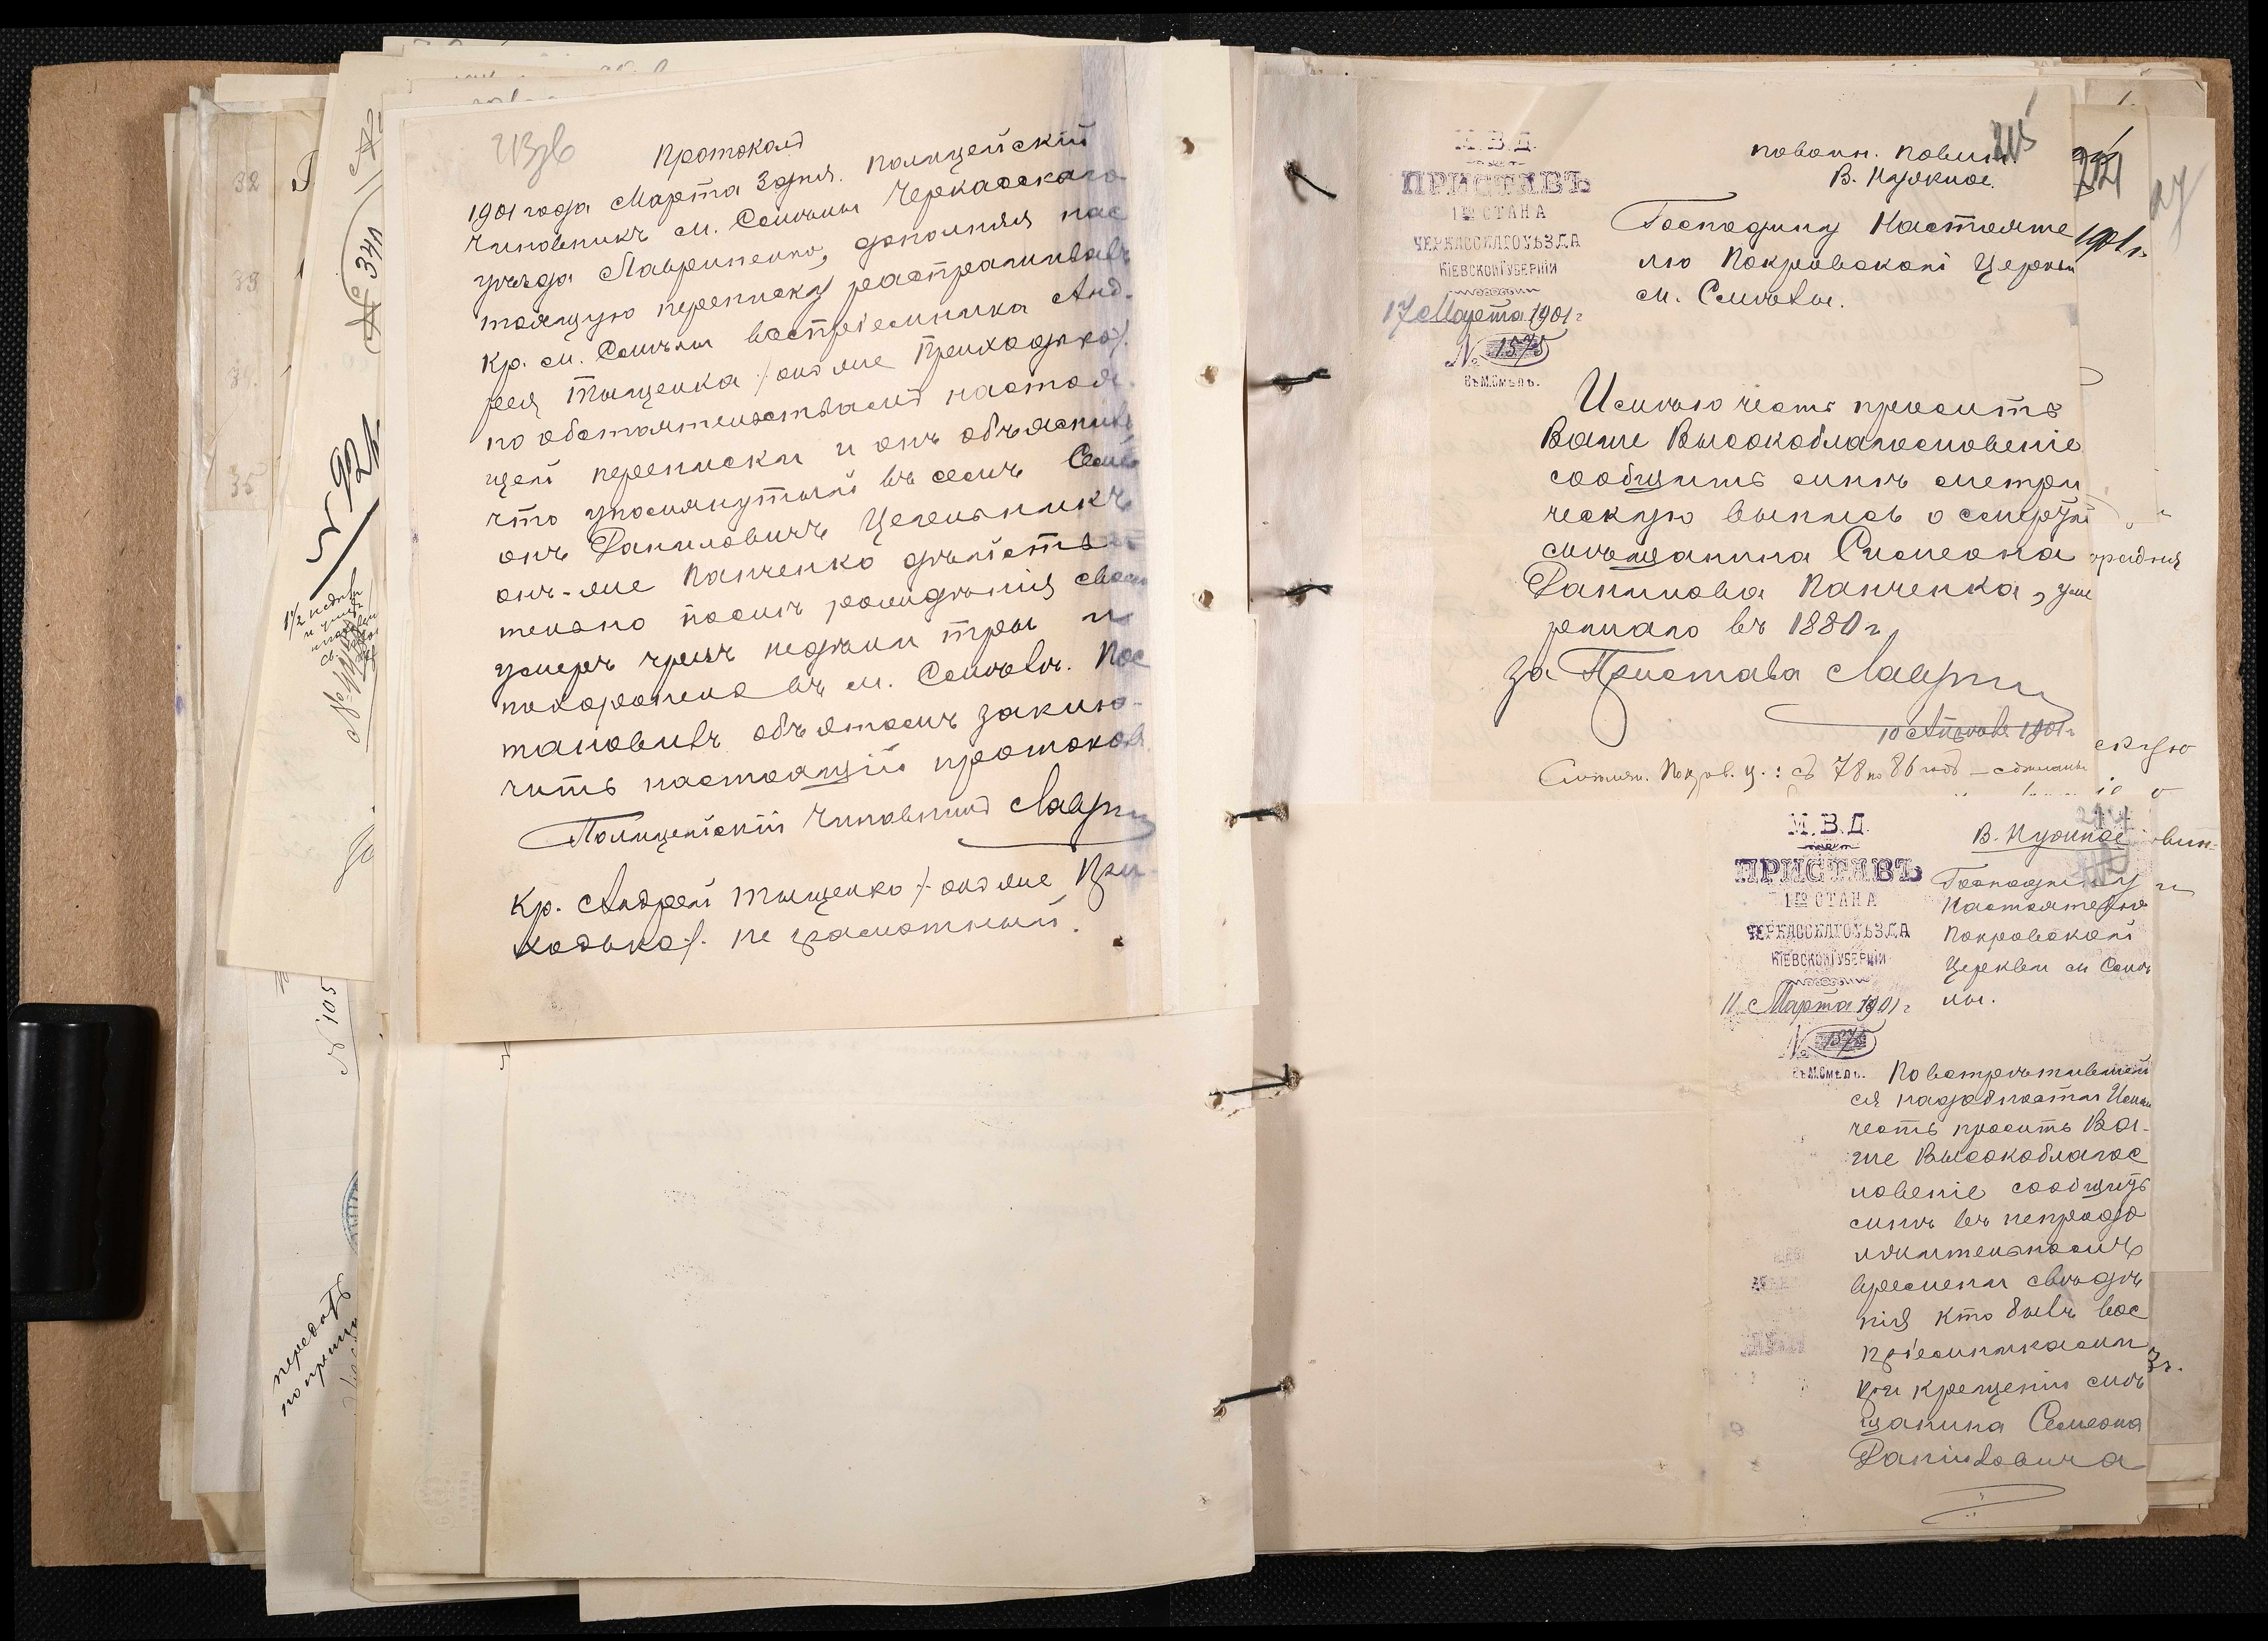 Протоколъ
1901 года Марта 3 дня. Полицейскій
Чиновникъ м. Смѣлы Черкасскаго
уѣзда Лавриненко, дополняя нас
тоящую переписку распрашивалъ
кр. м. Смѣлы воспріемника Анд-
рея Тыщенка /онъ же Приходько/.
по обстоятельствамъ настоя-
щей переписки и онъ объяснилъ
что упомянутый въ семъ Семе
онъ Даниловичъ Цегельникъ
онъ-же Панченко дѣйстви
тельно послѣ рожденія своего
умеръ чрезъ недѣли три и
похороненъ въ м. Смѣлѣ. Пос
тановилъ объ этомъ заклю-
чить настоящій протоколъ
Полицейскій Чиновникъ Лаври
Кр. Андрей Тыщенко /онъ же При
ходько/. не грамотный.
№ 341
№ 92
1½ недѣли
№ 105
передать
32
33
34.
35
М. В. Д.
ПРИСТАВЪ
1го СТАНА
ЧЕРКАССКАГО УѢЗДА
КІЕВСКОЙ ГУБЕРНІИ
17 Марта 1901 г
№ 1575
Въ М. Смѣлѣ.
по воин. повин
В. Нужное.
215
Господину Настояте
лю Покровской Церкви
м. Смѣлы.
1901 г.
Имѣю честь просить
Ваше Высокоблагословеніе
сообщить мнѣ метри
ческую выпись о смерти
смѣщанина Симеона
Данилова Панченка, уме
ршаго въ 1880 г.
За Пристава Лаври
10 Апрѣля 1901 г
Смѣлян. Покров. ц.: съ 78 по 86 годъ — сдѣланы
скую
М. В. Д.
ПРИСТАВЪ
1го СТАНА
ЧЕРКАССКАГО УѢЗДА
КІЕВСКОЙ ГУБЕРНІИ
11 Марта 1901 г
№ 1375
Въ М. Смѣлѣ.
В. Нужное
Господину
Настоятелю
Покровской
Церкви м Смѣ
лы.
По встрѣтившей
ся надобности Имѣю
честь просить Ва-
ше Высокоблагос
ловеніе сообщить
мнѣ въ непродо
лжительномъ
времени свѣдѣ
нія кто былъ вос
пріемниками
при крещеніи мѣ
щанина Семеона
Даниловича